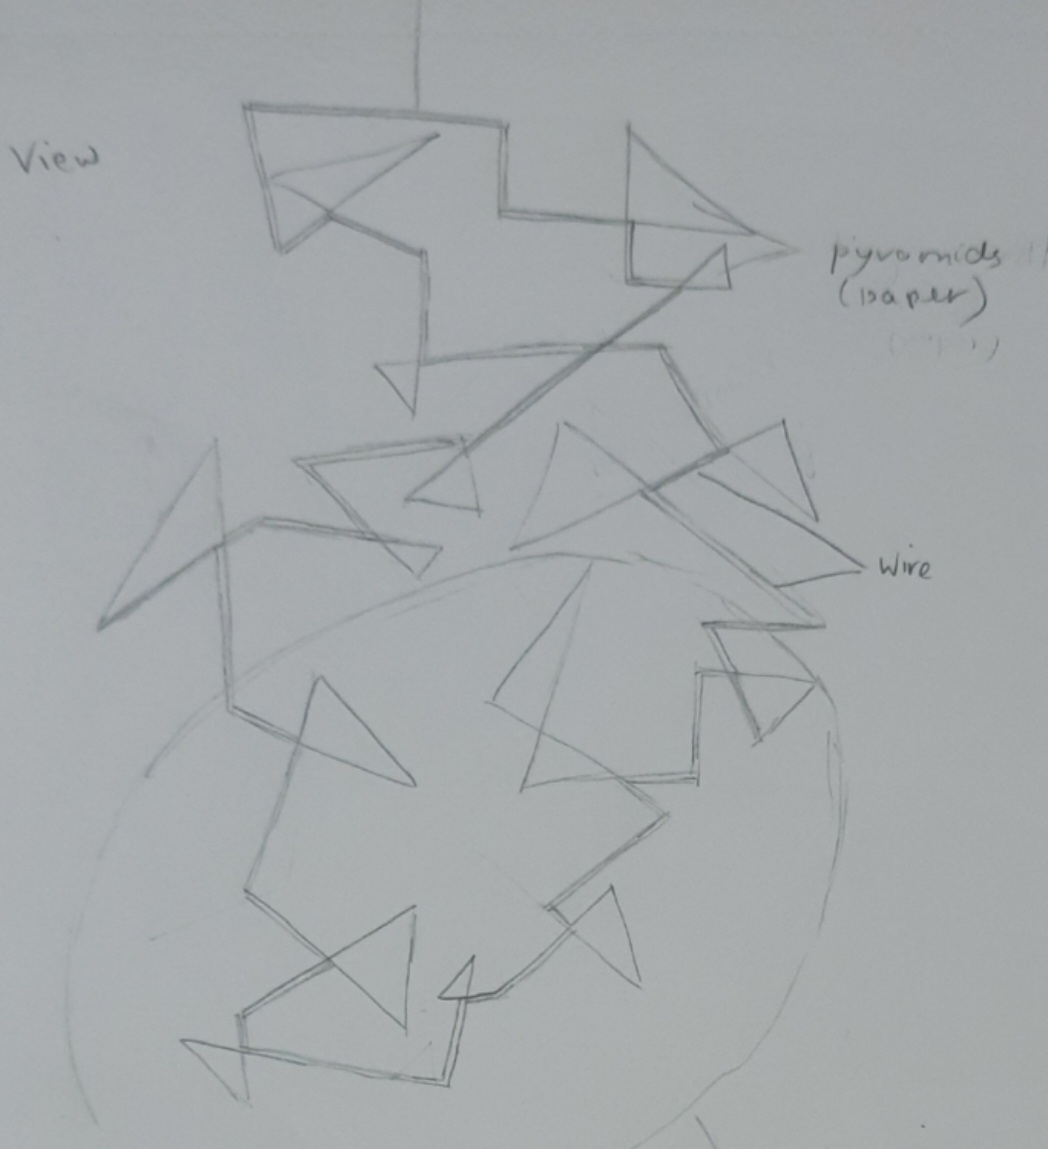 View
pyramids
(paper)
Wire